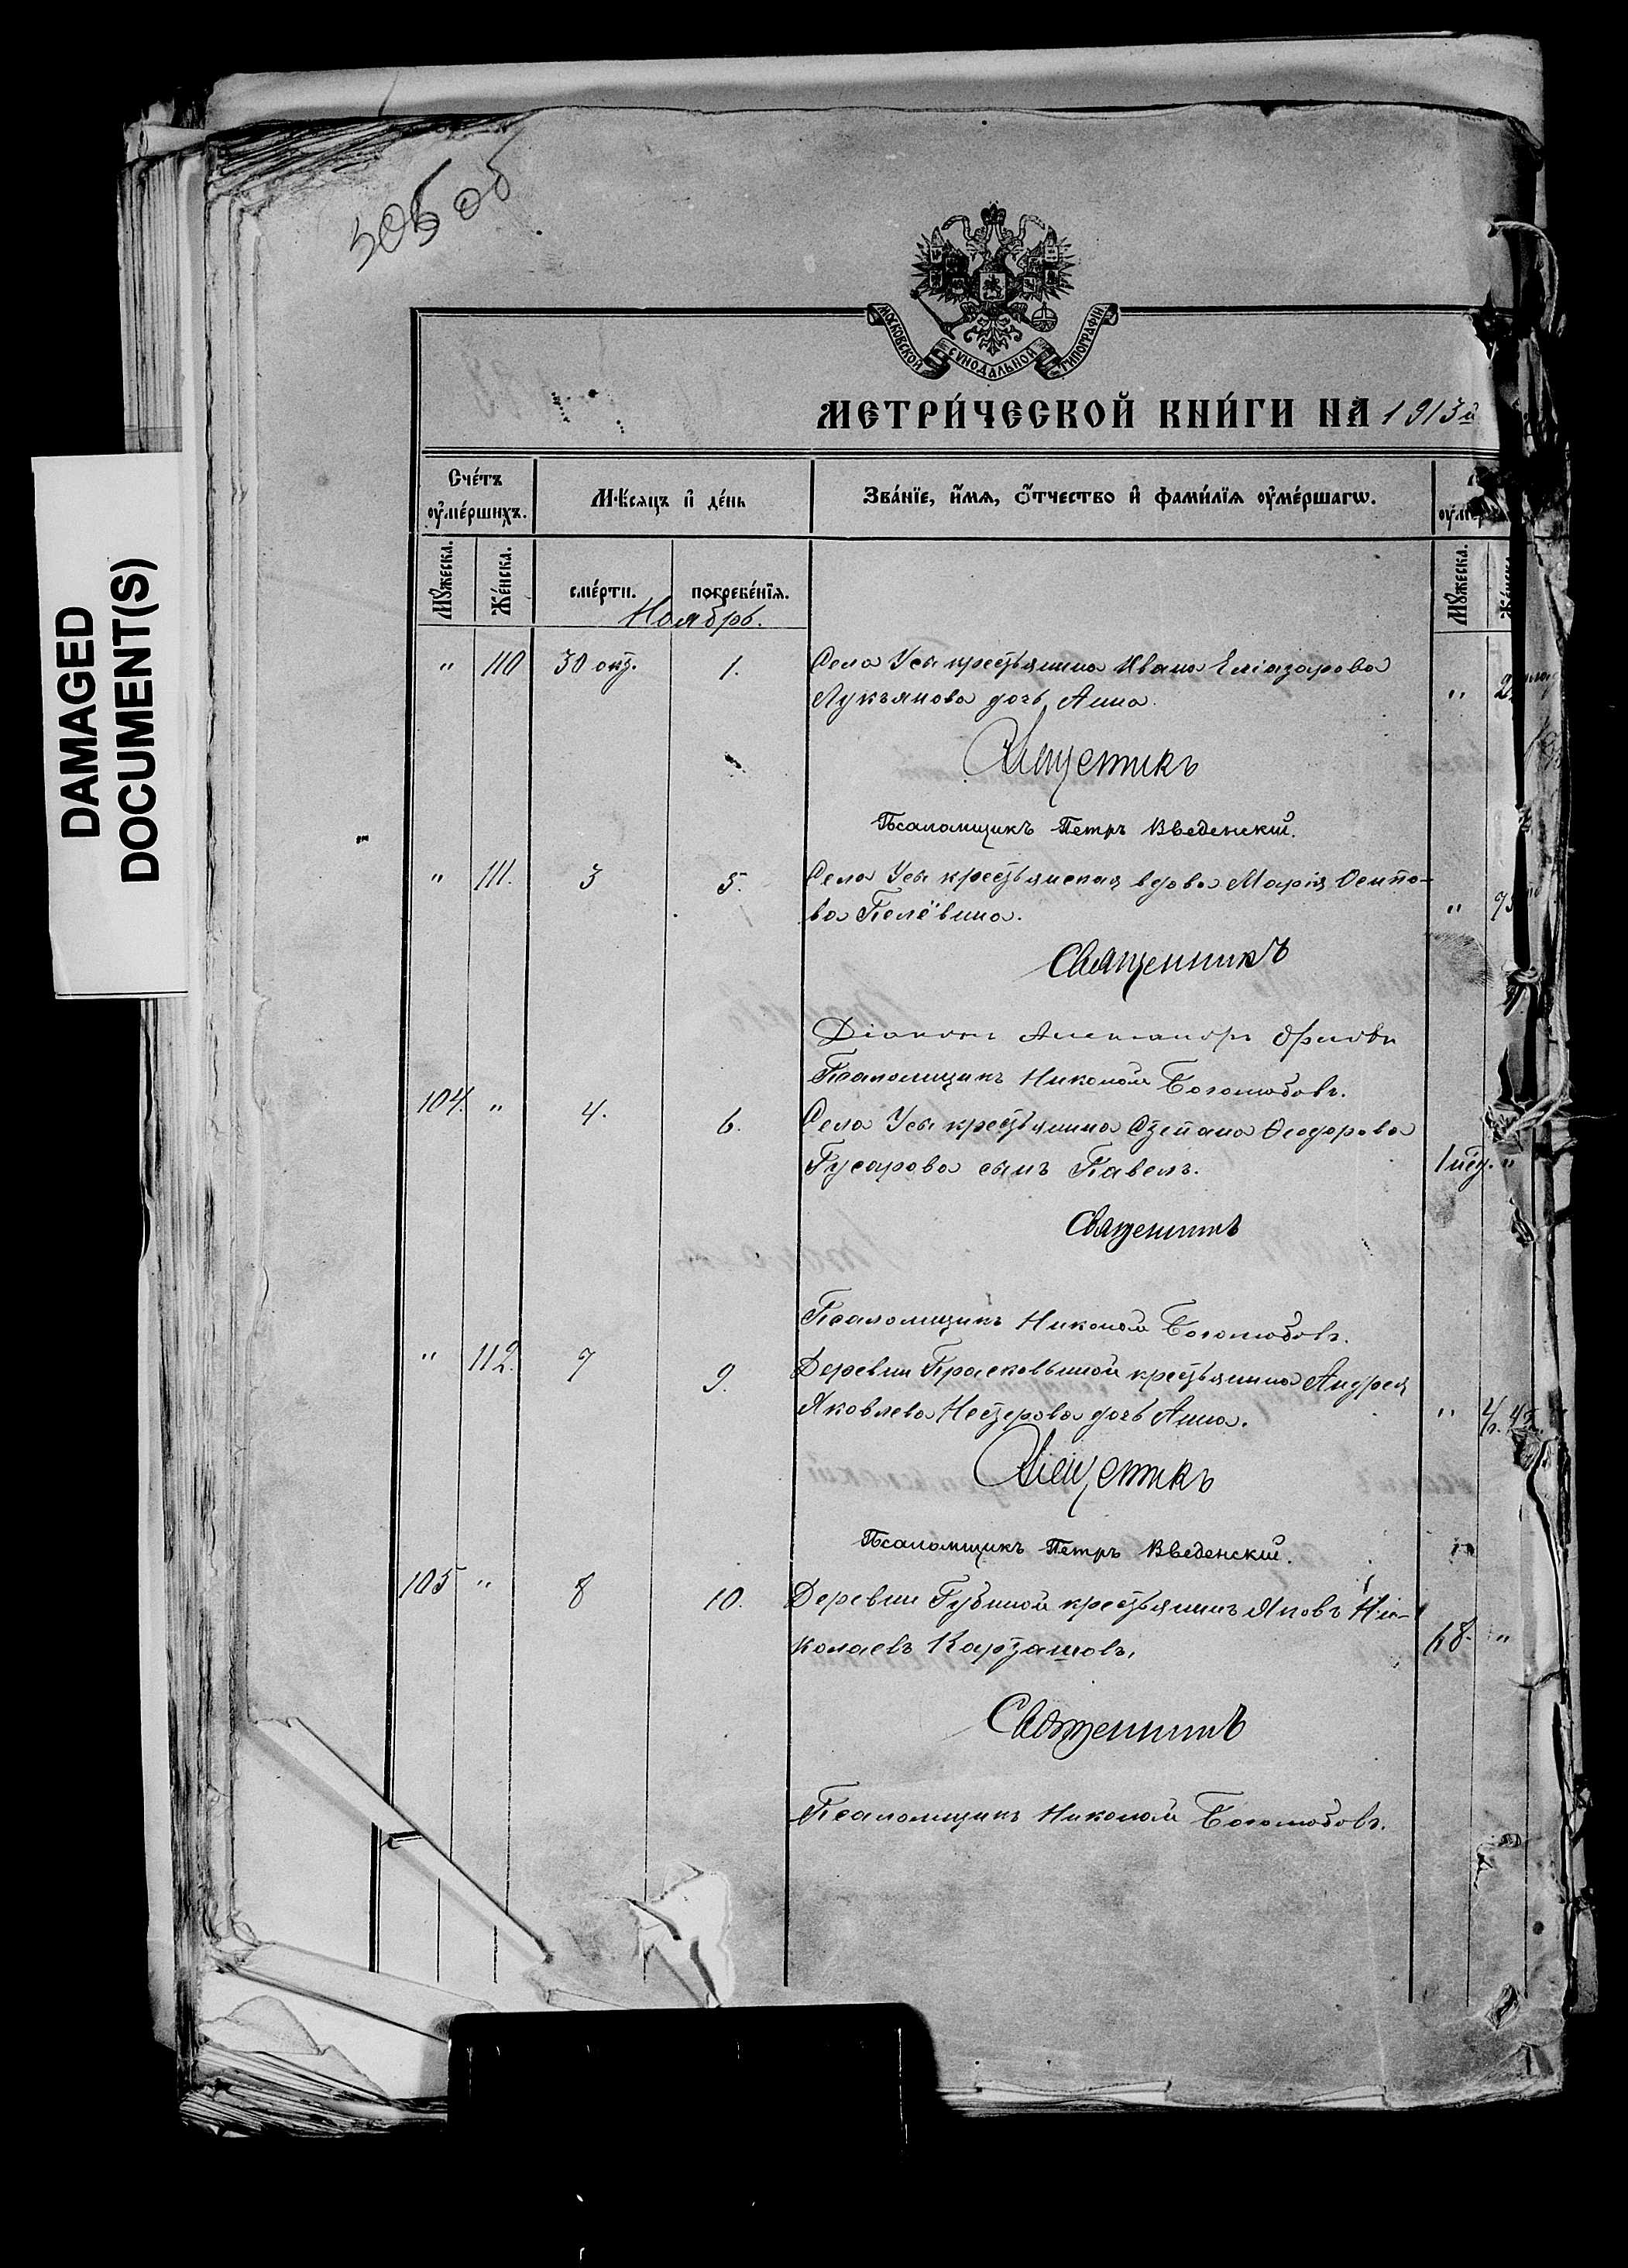 305 об
DAMAGED
DOCUMENT(S)
МОСКОВСКОЙ СУНОДАЛЬНОЙ ТИПОГРАФІИ
МЕТРИ́ЧЕСКОЙ КНИ́ГИ НА 1913й
Сче́тъ оуме́ршихъ.
Мѣсяцъ и де́нь
Зва́нїе, и́мя, о́тчество и фами́лїя оуме́ршагѡ.
Мꙋжеска.
Же́нска.
сме́рти.
погребе́нїя.
Мꙋжеска.
Ноябрь.
" 110 30 окт. 1. Села Усы крестьянина Ивана Еліазарова "
Лукьянова дочь Анна.
Священникъ
Псаломщикъ Петръ Введенскій.
" 111. 3 5. Села Усы крестьянская вдова Марія Осипо-
ва Пелёвина. "
Священникъ
Діаконъ Александръ Орловъ
Псаломщикъ Николай Боголюбовъ.
104. " 4. 6. Села Усы крестьянина Стефана Ѳеодорова
Гусарова сынъ Павелъ. 1 нед. "
Священникъ
Псаломщикъ Николай Боголюбовъ.
" 112. 7 9. Деревни Прасковьиной крестьянина Андрея
Яковлева Нестерова дочь Анна. "
Священникъ
Псаломщикъ Петръ Введенскій.
105 " 8 10. Деревни Губиной крестьянинъ Яковъ Ни-
колаевъ Карташовъ. 68. "
Священникъ
Псаломщикъ Николай Боголюбовъ.